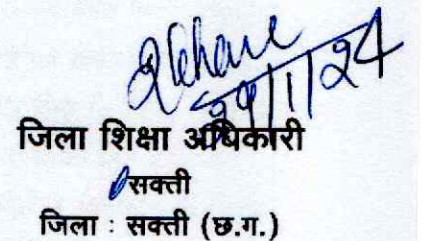 29/1/24
जिला शिक्षा अधिकारी
सक्ती
जिला : सक्ती (छ.ग.)